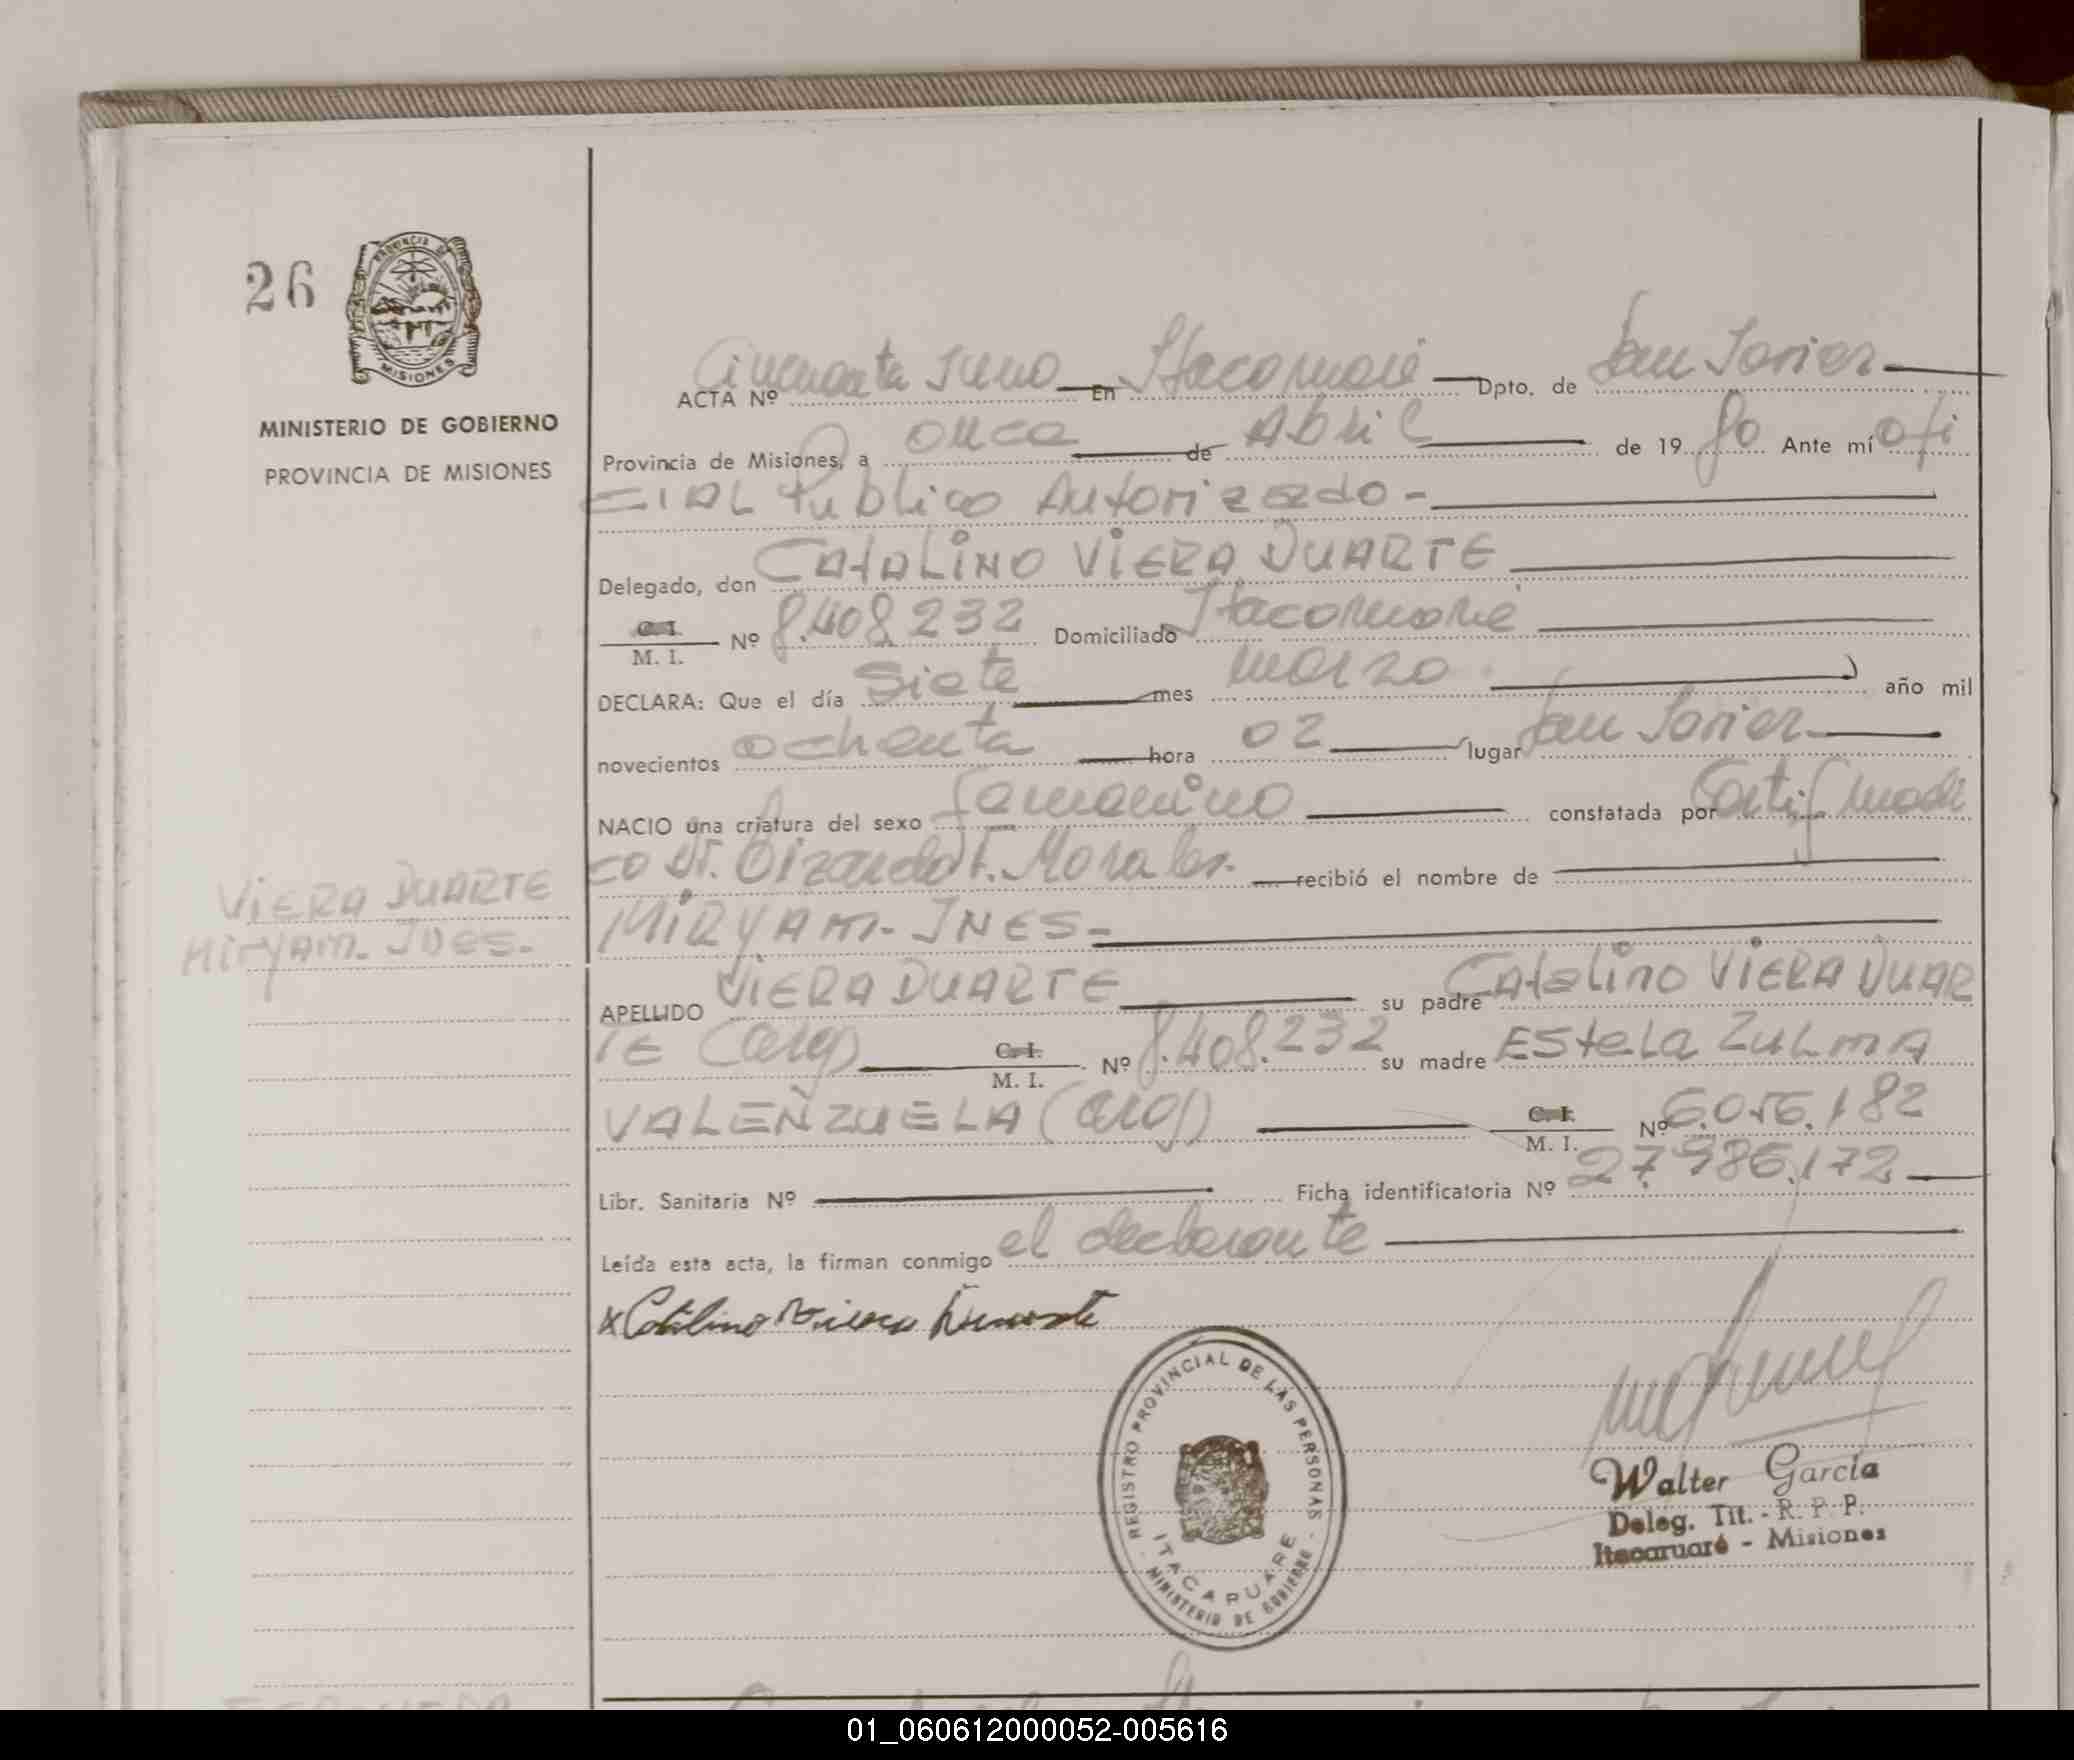 26
PROVINCIA DE
MISIONES
MINISTERIO DE GOBIERNO
PROVINCIA DE MISIONES
VIERA DUARTE
Miryam. INES.
ACTA Nº Cincuenta Y uno En Itacaruaré Dpto. de San Javier
Provincia de Misiones, a once de Abril de 19 80 Ante mí ofi
CIAL Publico Autorizado -
Delegado, don CATALINO VIERA DUARTE
C. I. / M. I. Nº 8.408.232 Domiciliado Itacaruaré
DECLARA: Que el día siete mes marzo año mil
novecientos ochenta hora 02 lugar San Javier
NACIO una criatura del sexo femenino constatada por Certif medi
co Dr. Morales. recibió el nombre de
MIRYAM. INES -
APELLIDO VIERA DUARTE su padre Catalino VIERA DUAR
TE (arg) C. I. / M. I. Nº 8.408.232 su madre EStela ZULMA
VALENZUELA (arg) C. I. / M. I. Nº 6.056.182
Libr. Sanitaria Nº Ficha identificatoria Nº 27.986.172
Leída esta acta, la firman conmigo el declarante
x Catalino Viera Duarte
REGISTRO PROVINCIAL DE LAS PERSONAS -
ITACARUARE
- MINISTERIO DE GOBIERNO
Walter García
Deleg. Tit. - R. P. P.
Itacaruaré - Misiones
01_060612000052-005616